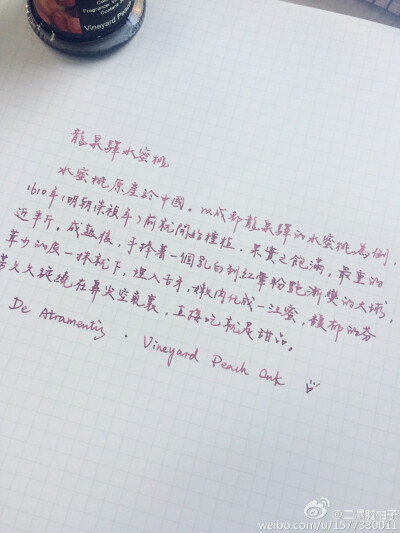 Vineyard Peach
龍泉驛水蜜桃
水蜜桃原產於中國。以成都龍泉驛的水蜜桃為例,
1610年(明朝 年)前就開始種植。果實之飽滿,最重的
近半斤。成熟後,手捧著一個乳白到紅暈粉艷漸變的大球,
的皮一抹就下,進入舌牙,嫩肉化成一江蜜,馥郁的芬
芳久久缭繞在鼻尖空氣裏,直接吃就是甜品。
De Atramentis . Vineyard Peach Ink
@二濕醬柚子
weibo.com/u/1577380011